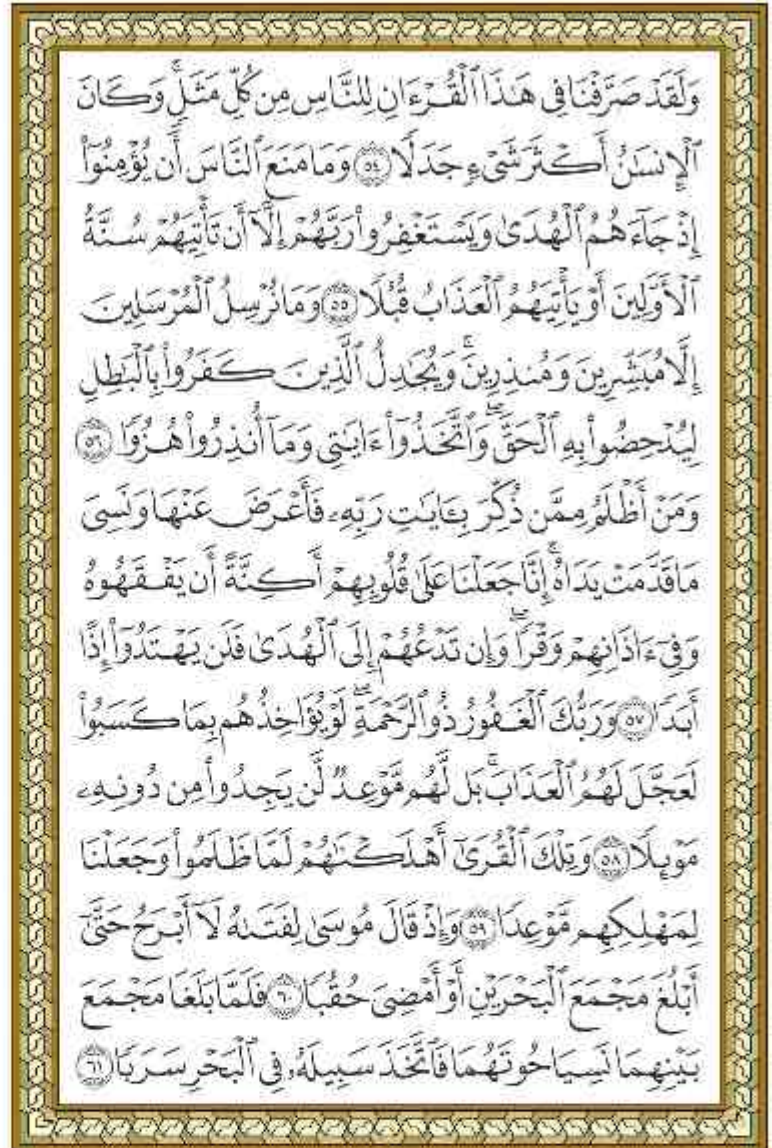 وَلَقَدْ صَرَّفْنَا فِي هَٰذَا ٱلْقُرْءَانِ لِلنَّاسِ مِن كُلِّ مَثَلٍۚ وَكَانَ
ٱلْإِنسَٰنُ أَكْثَرَ شَىْءٍ جَدَلًا ٥٤ وَمَا مَنَعَ ٱلنَّاسَ أَن يُؤْمِنُوٓا۟
إِذْ جَآءَهُمُ ٱلْهُدَىٰ وَيَسْتَغْفِرُوا۟ رَبَّهُمْ إِلَّآ أَن تَأْتِيَهُمْ سُنَّةُ
ٱلْأَوَّلِينَ أَوْ يَأْتِيَهُمُ ٱلْعَذَابُ قُبُلًا ٥٥ وَمَا نُرْسِلُ ٱلْمُرْسَلِينَ
إِلَّا مُبَشِّرِينَ وَمُنذِرِينَۚ وَيُجَٰدِلُ ٱلَّذِينَ كَفَرُوا۟ بِٱلْبَٰطِلِ
لِيُدْحِضُوا۟ بِهِ ٱلْحَقَّۖ وَٱتَّخَذُوٓا۟ ءَايَٰتِى وَمَآ أُنذِرُوا۟ هُزُوًا ٥٦
وَمَنْ أَظْلَمُ مِمَّن ذُكِّرَ بِـَٔايَٰتِ رَبِّهِۦ فَأَعْرَضَ عَنْهَا وَنَسِىَ
مَا قَدَّمَتْ يَدَاهُۚ إِنَّا جَعَلْنَا عَلَىٰ قُلُوبِهِمْ أَكِنَّةً أَن يَفْقَهُوهُ
وَفِىٓ ءَاذَانِهِمْ وَقْرًاۖ وَإِن تَدْعُهُمْ إِلَى ٱلْهُدَىٰ فَلَن يَهْتَدُوٓا۟ إِذًا
أَبَدًا ٥٧ وَرَبُّكَ ٱلْغَفُورُ ذُو ٱلرَّحْمَةِۖ لَوْ يُؤَاخِذُهُم بِمَا كَسَبُوا۟
لَعَجَّلَ لَهُمُ ٱلْعَذَابَۚ بَل لَّهُم مَّوْعِدٌ لَّن يَجِدُوا۟ مِن دُونِهِۦ
مَوْئِلًا ٥٨ وَتِلْكَ ٱلْقُرَىٰٓ أَهْلَكْنَٰهُمْ لَمَّا ظَلَمُوا۟ وَجَعَلْنَا
لِمَهْلِكِهِم مَّوْعِدًا ٥٩ وَإِذْ قَالَ مُوسَىٰ لِفَتَىٰهُ لَآ أَبْرَحُ حَتَّىٰٓ
أَبْلُغَ مَجْمَعَ ٱلْبَحْرَيْنِ أَوْ أَمْضِىَ حُقُبًا ٦٠ فَلَمَّا بَلَغَا مَجْمَعَ
بَيْنِهِمَا نَسِيَا حُوتَهُمَا فَٱتَّخَذَ سَبِيلَهُۥ فِى ٱلْبَحْرِ سَرَبًا ٦١